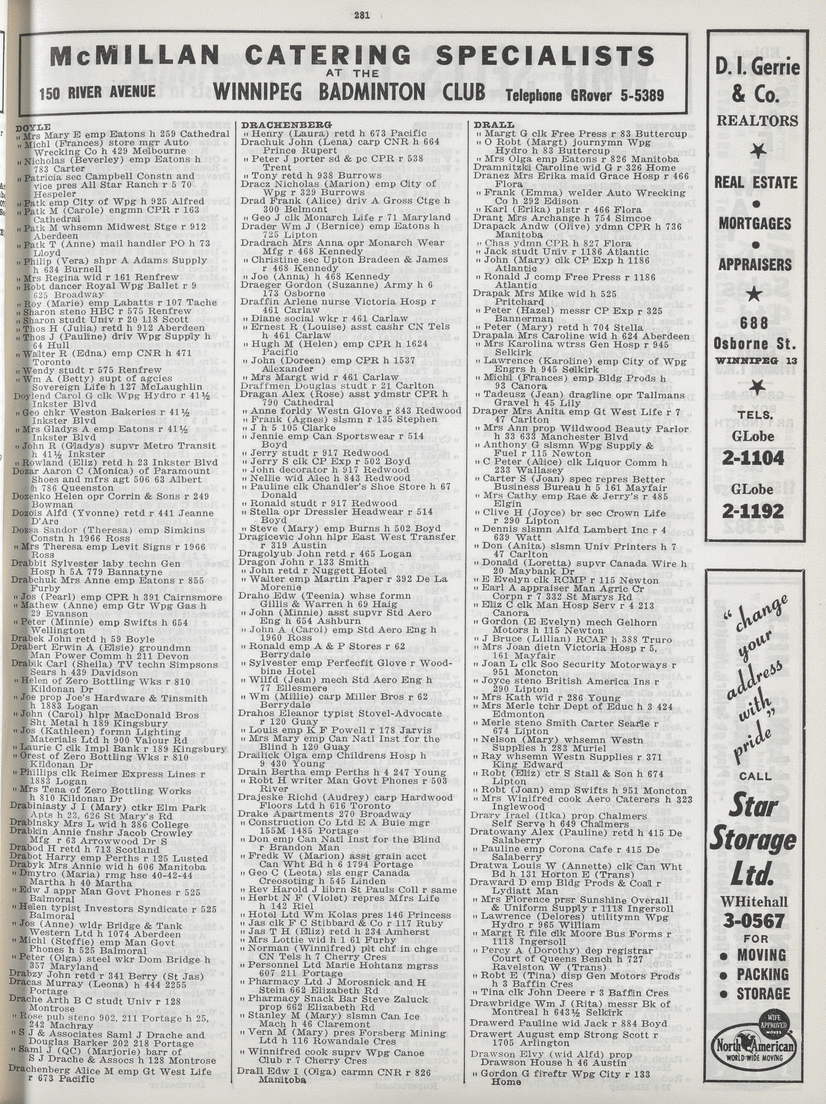 281
McMILLAN CATERING SPECIALISTS
AT THE
150 RIVER AVENUE WINNIPEG BADMINTON CLUB Telephone GRover 5-5389
DOYLE
" Mrs Mary E emp Eatons h 259 Cathedral
" Michl (Frances) store mgr Auto
Wrecking Co h 429 Melbourne
" Nicholas (Beverley) emp Eatons h
783 Carter
" Patricia sec Campbell Constn and
vice pres All Star Ranch r 5 70
Hespeler
" Patk emp City of Wpg h 925 Alfred
" Patk M (Carole) engmn CPR r 163
Cathedral
" Patk M whsemn Midwest Stge r 912
Aberdeen
" Patk T (Anne) mail handler PO h 73
Lloyd
" Philip (Vera) shpr A Adams Supply
h 634 Burnell
" Mrs Regina wid r 161 Renfrew
" Robt dancer Royal Wpg Ballet r 9
625 Broadway
" Roy (Marie) emp Labatts r 107 Tache
" Sharon steno HBC r 575 Renfrew
" Sharon studt Univ r 20 118 Scott
" Thos H (Julia) retd h 912 Aberdeen
" Thos J (Pauline) driv Wpg Supply h
64 Hull
" Walter R (Edna) emp CNR h 471
Toronto
" Wendy studt r 575 Renfrew
" Wm A (Betty) supt of agcies
Sovereign Life h 127 McLaughlin
Doylend Carol G clk Wpg Hydro r 41½
Inkster Blvd
" Geo chkr Weston Bakeries r 41½
Inkster Blvd
" Mrs Gladys A emp Eatons r 41½
Inkster Blvd
" John R (Gladys) supvr Metro Transit
h 41½ Inkster
" Rowland (Eliz) retd h 23 Inkster Blvd
Dozar Aaron C (Monica) of Paramount
Shoes and mfrs agt 506 63 Albert
h 786 Queenston
Dozenko Helen opr Corrin & Sons r 249
Bowman
Dozois Alfd (Yvonne) retd r 441 Jeanne
D'Arc
Dozsa Sandor (Theresa) emp Simkins
Constn h 1966 Ross
" Mrs Theresa emp Levit Signs r 1966
Ross
Drabbit Sylvester laby techn Gen
Hosp h 5A 779 Bannatyne
Drabchuk Mrs Anne emp Eatons r 855
Furby
" Jos (Pearl) emp CPR h 391 Cairnsmore
" Mathew (Anne) emp Gtr Wpg Gas h
29 Evanson
" Peter (Minnie) emp Swifts h 654
Wellington
Drabek John retd h 59 Boyle
Drabert Erwin A (Elsie) groundmn
Man Power Comm h 211 Devon
Drabik Carl (Sheila) TV techn Simpsons
Sears h 439 Davidson
" Helen of Zero Bottling Wks r 810
Kildonan Dr
" Joe prop Joe's Hardware & Tinsmith
h 1883 Logan
" John (Carol) hlpr MacDonald Bros
Sht Metal h 189 Kingsbury
" Jos (Kathleen) formn Lighting
Materials Ltd h 900 Valour Rd
" Laurie C clk Impl Bank r 189 Kingsbury
" Orest of Zero Bottling Wks r 810
Kildonan Dr
" Phillips clk Reimer Express Lines r
1883 Logan
" Mrs Tena of Zero Bottling Works
h 810 Kildonan Dr
Drabiniasty J I (Mary) ctkr Elm Park
Apts h 23, 626 St Mary's Rd
Drabinsky Mrs L wid h 386 College
Drabkin Annie fnshr Jacob Crowley
Mfg r 63 Arrowwood Dr S
Drabod H retd h 713 Scotland
Drabot Harry emp Perths r 125 Lusted
Drabyk Mrs Annie wid h 606 Manitoba
" Dmytro (Maria) rmg hse 40-42-44
Martha h 40 Martha
" Edw J appr Man Govt Phones r 525
Balmoral
" Helen typist Investors Syndicate r 525
Balmoral
" Jos (Anne) wldr Bridge & Tank
Western Ltd h 1074 Aberdeen
" Michl (Steffie) emp Man Govt
Phones h 525 Balmoral
" Peter (Olga) steel wkr Dom Bridge h
357 Maryland
Drabzy John retd r 341 Berry (St Jas)
Dracas Murray (Leona) h 444 2255
Portage
Drache Arth B C studt Univ r 128
Montrose
" Rose pub steno 902, 211 Portage h 25,
242 Machray
" S J & Associates Saml J Drache and
Douglas Barker 202 218 Portage
" Saml J (QC) (Marjorie) barr of
S J Drache & Assocs h 128 Montrose
Drachenberg Alice M emp Gt West Life
r 673 Pacific
DRACHENBERG
" Henry (Laura) retd h 673 Pacific
Drachuk John (Lena) carp CNR h 664
Prince Rupert
" Peter J porter sd & pc CPR r 538
Trent
" Tony retd h 938 Burrows
Dracz Nicholas (Marion) emp City of
Wpg r 329 Burrows
Drad Frank (Alice) driv A Gross Ctge h
300 Belmont
" Geo J clk Monarch Life r 71 Maryland
Drader Wm J (Bernice) emp Eatons h
725 Lipton
Dradrach Mrs Anna opr Monarch Wear
Mfg r 468 Kennedy
" Christine sec Upton Bradeen & James
r 468 Kennedy
" Joe (Anna) h 468 Kennedy
Draeger Gordon (Suzanne) Army h 6
173 Osborne
Draffin Arlene nurse Victoria Hosp r
461 Carlaw
" Diane social wkr r 461 Carlaw
" Ernest R (Louise) asst cashr CN Tels
h 461 Carlaw
" Hugh M (Helen) emp CPR h 1624
Pacific
" John (Doreen) emp CPR h 1537
Alexander
" Mrs Margt wid r 461 Carlaw
Draffmen Douglas studt r 21 Carlton
Dragan Alex (Rose) asst ydmstr CPR h
790 Cathedral
" Anne forldy Westn Glove r 843 Redwood
" Frank (Agnes) slsmn r 135 Stephen
" J h 5 105 Clarke
" Jennie emp Can Sportswear r 514
Boyd
" Jerry studt r 917 Redwood
" Jerry S clk CP Exp r 502 Boyd
" John decorator h 917 Redwood
" Nellie wid Alec h 843 Redwood
" Pauline clk Chandler's Shoe Store h 67
Donald
" Ronald studt r 917 Redwood
" Stella opr Dressler Headwear r 514
Boyd
" Steve (Mary) emp Burns h 502 Boyd
Dragicevic John hlpr East West Transfer
r 319 Austin
Dragolyub John retd r 465 Logan
Dragon John r 133 Smith
" John retd r Nuggett Hotel
" Walter emp Martin Paper r 392 De La
Morenie
Draho Edw (Teenia) whse formn
Gillis & Warren h 69 Haig
" John (Minnie) asst supvr Std Aero
Eng h 654 Ashburn
" John A (Carol) emp Std Aero Eng h
1960 Ross
" Ronald emp A & P Stores r 62
Berrydale
" Sylvester emp Perfecfit Glove r Wood-
bine Hotel
" Wilfd (Jean) mech Std Aero Eng h
77 Ellesmere
" Wm (Millie) carp Miller Bros r 62
Berrydale
Drahos Eleanor typist Stovel-Advocate
r 120 Guay
" Louis emp K F Powell r 178 Jarvis
" Mrs Mary emp Can Natl Inst for the
Blind h 120 Guay
Drailick Olga emp Childrens Hosp h
9 430 Young
Drain Bertha emp Perths h 4 247 Young
" Robt H writer Man Govt Phones r 503
River
Drajeske Richd (Audrey) carp Hardwood
Floors Ltd h 616 Toronto
Drake Apartments 270 Broadway
" Construction Co Ltd E A Buie mgr
155M 1485 Portage
" Don emp Can Natl Inst for the Blind
r Brandon Man
" Fredk W (Marion) asst grain acct
Can Wht Bd h 6 1794 Portage
" Geo C (Leota) sls engr Canada
Creosoting h 545 Linden
" Rev Harold J librn St Pauls Coll r same
" Herbt N F (Violet) repres Mfrs Life
h 142 Riel
" Hotel Ltd Wm Kolas pres 146 Princess
" Jas clk F C Stibbard & Co r 117 Ruby
" Jas T H (Eliz) retd h 234 Amherst
" Mrs Lottie wid h 1 61 Furby
" Norman (Winnifred) plt chf in chge
CN Tels h 7 Cherry Cres
" Personnel Ltd Marie Hohtanz mgrss
607 211 Portage
" Pharmacy Ltd J Morosnick and H
Stein 662 Elizabeth Rd
" Pharmacy Snack Bar Steve Zaluck
prop 662 Elizabeth Rd
" Stanley M (Mary) slsmn Can Ice
Mach h 46 Claremont
" Vern M (Mary) pres Forsberg Mining
Ltd h 116 Rowandale Cres
" Winnifred cook suprv Wpg Canoe
Club r 7 Cherry Cres
Drall Edw I (Olga) carmn CNR r 826
Manitoba
DRALL
" Margt G clk Free Press r 83 Buttercup
" O Robt (Margt) journymn Wpg
Hydro h 83 Buttercup
" Mrs Olga emp Eatons r 826 Manitoba
Dramnitzki Caroline wid G r 326 Home
Dranez Mrs Erika maid Grace Hosp r 466
Flora
" Frank (Emma) welder Auto Wrecking
Co h 292 Edison
" Karl (Erika) plstr r 466 Flora
Drant Mrs Archange h 754 Simcoe
Drapack Andw (Olive) ydmn CPR h 736
Manitoba
" Chas ydmn CPR h 827 Flora
" Jack studt Univ r 1186 Atlantic
" John (Mary) clk CP Exp h 1186
Atlantic
" Ronald J comp Free Press r 1186
Atlantic
Drapak Mrs Mike wid h 525
Pritchard
" Peter (Hazel) messr CP Exp r 325
Bannerman
" Peter (Mary) retd h 704 Stella
Drapala Mrs Caroline wid h 624 Aberdeen
" Mrs Karolina wtrss Gen Hosp r 945
Selkirk
" Lawrence (Karoline) emp City of Wpg
Engrs h 945 Selkirk
" Michl (Frances) emp Bldg Prods h
93 Canora
" Tadeusz (Jean) dragline opr Tallmans
Gravel h 45 Lily
Draper Mrs Anita emp Gt West Life r 7
47 Carlton
" Mrs Ann prop Wildwood Beauty Parlor
h 33 633 Manchester Blvd
" Anthony G slsmn Wpg Supply &
Fuel r 115 Newton
" C Peter (Alice) clk Liquor Comm h
233 Wallasey
" Carter S (Joan) spec repres Better
Business Bureau h 5 161 Mayfair
" Mrs Cathy emp Rae & Jerry's r 485
Elgin
" Clive H (Joyce) br sec Crown Life
r 290 Lipton
" Dennis slsmn Alfd Lambert Inc r 4
639 Watt
" Don (Anita) slsmn Univ Printers h 7
47 Carlton
" Donald (Loretta) supvr Canada Wire h
20 Maybank Dr
" E Evelyn clk RCMP r 115 Newton
" Earl A appraiser Man Agric Cr
Corpn r 7 332 St Marys Rd
" Eliz C clk Man Hosp Serv r 4 213
Canora
" Gordon (E Evelyn) mech Gelhorn
Motors h 115 Newton
" J Bruce (Lillian) RCAF h 388 Truro
" Mrs Joan dietn Victoria Hosp r 5,
161 Mayfair
" Joan L clk Soo Security Motorways r
951 Moncton
" Joyce steno British America Ins r
290 Lipton
" Mrs Kath wid r 286 Young
" Mrs Merle tchr Dept of Educ h 3 424
Edmonton
" Merle steno Smith Carter Searle r
674 Lipton
" Nelson (Mary) whsemn Westn
Supplies h 283 Muriel
" Ray whsemn Westn Supplies r 371
King Edward
" Robt (Eliz) ctr S Stall & Son h 674
Lipton
" Robt (Joan) emp Swifts h 951 Moncton
" Mrs Winifred cook Aero Caterers h 323
Inglewood
Drary Irael (Itka) prop Chalmers
Self Serve h 649 Chalmers
Dratowany Alex (Pauline) retd h 415 De
Salaberry
" Pauline emp Corona Cafe r 415 De
Salaberry
Dratwa Louis W (Annette) clk Can Wht
Bd h 131 Horton E (Trans)
Draward D emp Bldg Prods & Coal r
Lydiatt Man
" Mrs Florence prsr Sunshine Overall
& Uniform Supply r 1118 Ingersoll
" Lawrence (Delores) utilitymn Wpg
Hydro r 965 William
" Margt R file clk Moore Bus Forms r
1118 Ingersoll
" Percy A (Dorothy) dep registrar
Court of Queens Bench h 727
Ravelston W (Trans)
" Robt E (Tina) disp Gen Motors Prods
h 3 Baffin Cres
" Tina clk John Deere r 3 Baffin Cres
Drawbridge Wm J (Rita) messr Bk of
Montreal h 643½ Selkirk
Drawerd Pauline wid Jack r 884 Boyd
Drawert August emp Strong Scott r
1705 Arlington
Drawson Elvy (wid Alfd) prop
Drawson House h 46 Austin
" Gordon G fireftr Wpg City r 133
Home
D. I. Gerrie
& Co.
REALTORS
REAL ESTATE
MORTGAGES
APPRAISERS
688
Osborne St.
WINNIPEG 13
TELS.
GLobe
2-1104
GLobe
2-1192
"change
your
address
with
pride"
CALL
Star
Storage
Ltd.
WHitehall
3-0567
FOR
• MOVING
• PACKING
• STORAGE
WIFE
APPROVED
MOVES
North American
WORLD-WIDE MOVING